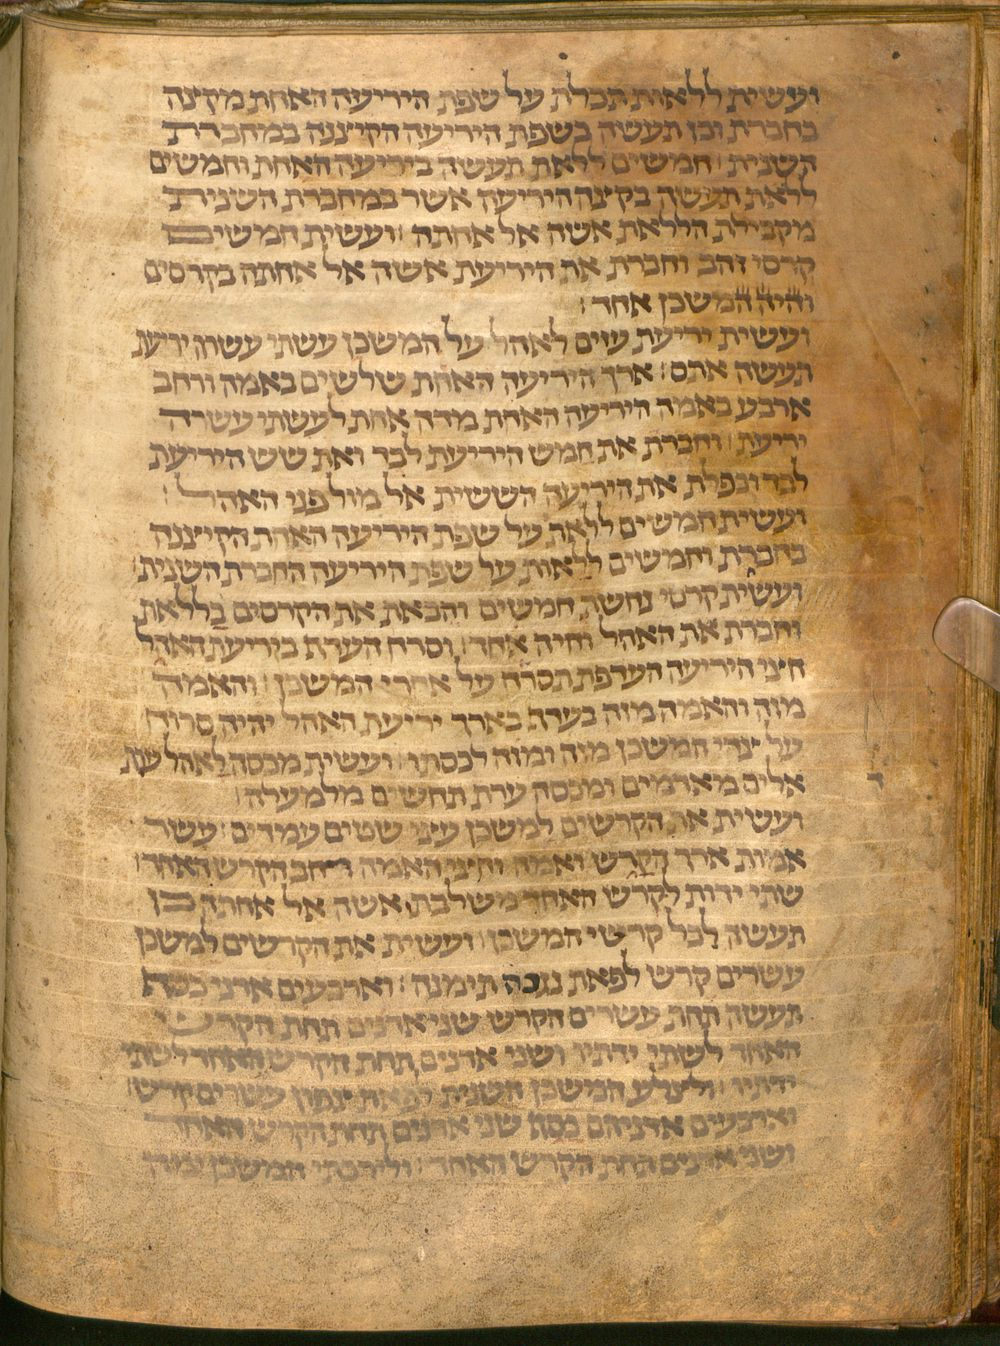 ועשית ללאות תכלת על שפת היריעה האחת מקצה
בחברת וכן תעשה בשפת היריעה הקיצנה במחברת
השנית : חמשים ללאת תעשה ביריעה האחת וחמשים
ללאת תעשה בקצה היריעה אשר במחברת השנית
מקבילת הללאת אשה אל אחתה : ועשית חמשים
קרסי זהב וחברת את היריעת אשה אל אחתה בקרסים
והיה המשכן אחד :
ועשית יריעת עזים לאהל על המשכן עשתי עשרה יריעת
תעשה אתם : ארך היריעה האחת שלשים באמה ורחב
ארבע באמה היריעה האחת מדה אחת לעשתי עשרה
יריעת : וחברת את חמש היריעת לבד ואת שש היריעת
לבד וכפלת את היריעה הששית אל מול פני האהל :
ועשית חמשים ללאת על שפת היריעה האחת הקיצנה
בחברת וחמשים ללאות על שפת היריעה החברת השנית :
ועשית קרסי נחשת חמשים והבאת את הקרסים בללאת
וחברת את האהל והיה אחד : וסרח העדף ביריעת האהל
חצי היריעה העדפת תסרח על אחרי המשכן : והאמה
מזה והאמה מזה בעדף בארך יריעת האהל יהיה סרוח
על צדי המשכן מזה ומזה לכסתו : ועשית מכסה לאהל ערת
אלים מאדמים ומכסה ערת תחשים מלמעלה :
ועשית את הקרשים למשכן עצי שטים עמדים : עשר
אמות ארך הקרש ואמה וחצי האמה רחב הקרש האחד :
שתי ידות לקרש האחד משלבת אשה אל אחתה כן
תעשה לכל קרשי המשכן : ועשית את הקרשים למשכן
עשרים קרש לפאת נגבה תימנה : וארבעים אדני כסף
תעשה תחת עשרים הקרש שני אדנים תחת הקרש
האחד לשתי ידתיו ושני אדנים תחת הקרש האחד לשתי
ידתיו : ולצלע המשכן השנית לפאת צפון עשרים קרש :
וארבעים אדניהם כסף שני אדנים תחת הקרש האחד
ושני אדנים תחת הקרש האחד : ולירכתי המשכן ימה